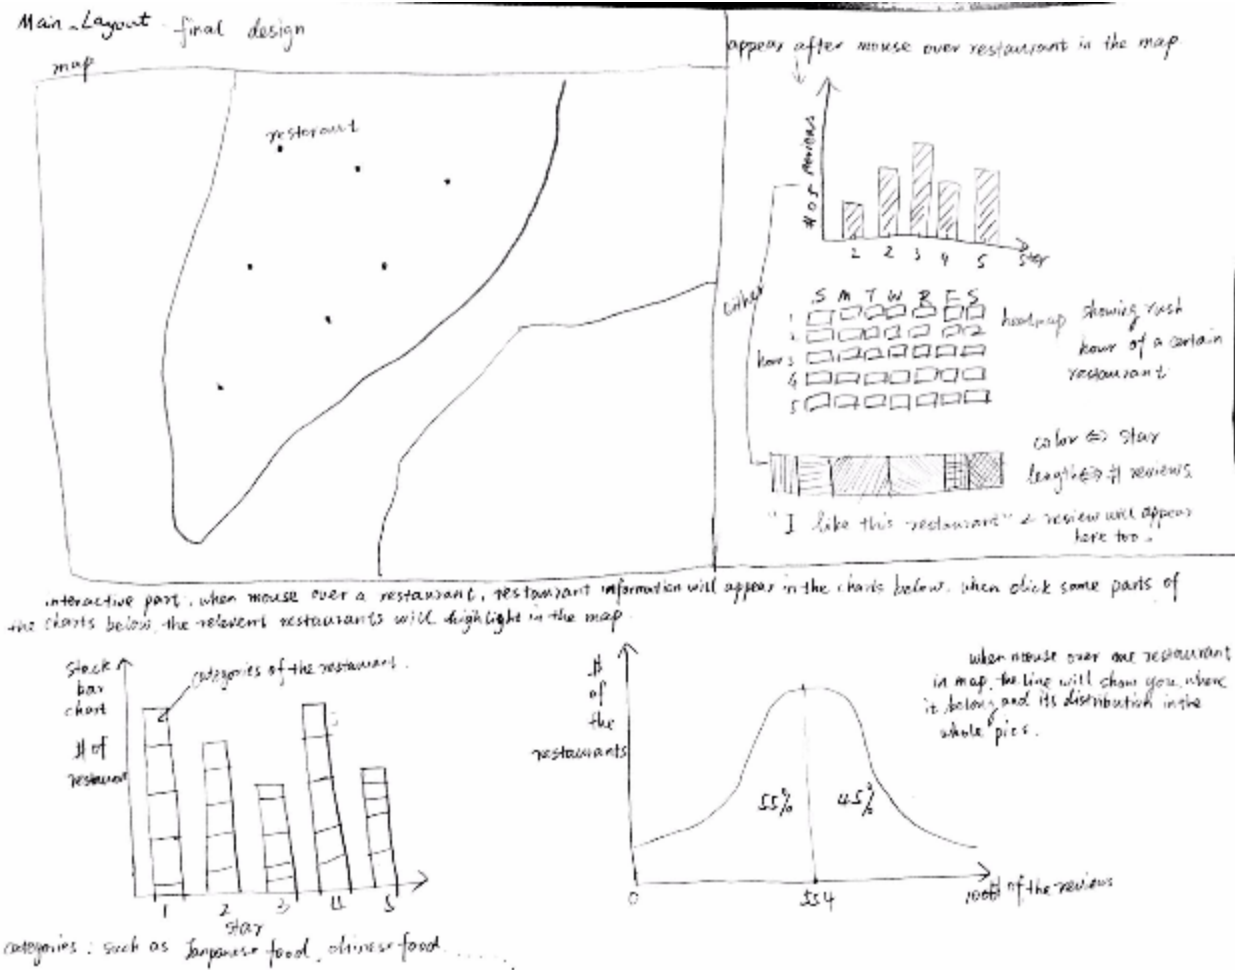 Main_Layout - final design
map
restaraut
appear after mouse over restaurant in the map.
# of reviews
1 2 3 4 5 star
either
S M T W R F S
1
2
hours 3
4
5
heatmap showing rush
hour of a certain
restaurant
color ⇔ star
length ⇔ # reviews
"I like this restaurant" & review will appear
here too.
interactive part. when mouse over a restaurant, restaurant information will appear in the charts below. when click some parts of
the charts below, the relevent restaurants will highlight in the map.
stack
bar
chart
# of
restauran
categories of the restaurant.
1 2 3 4 5
star
categories: such as Janpanese food, chinese food.......
#
of
the
restaurants
55% 45%
0 554 # of the reviews
when mouse over one restaurant
in map, the line will show you where
it belong and its distribution in the
whole pics.